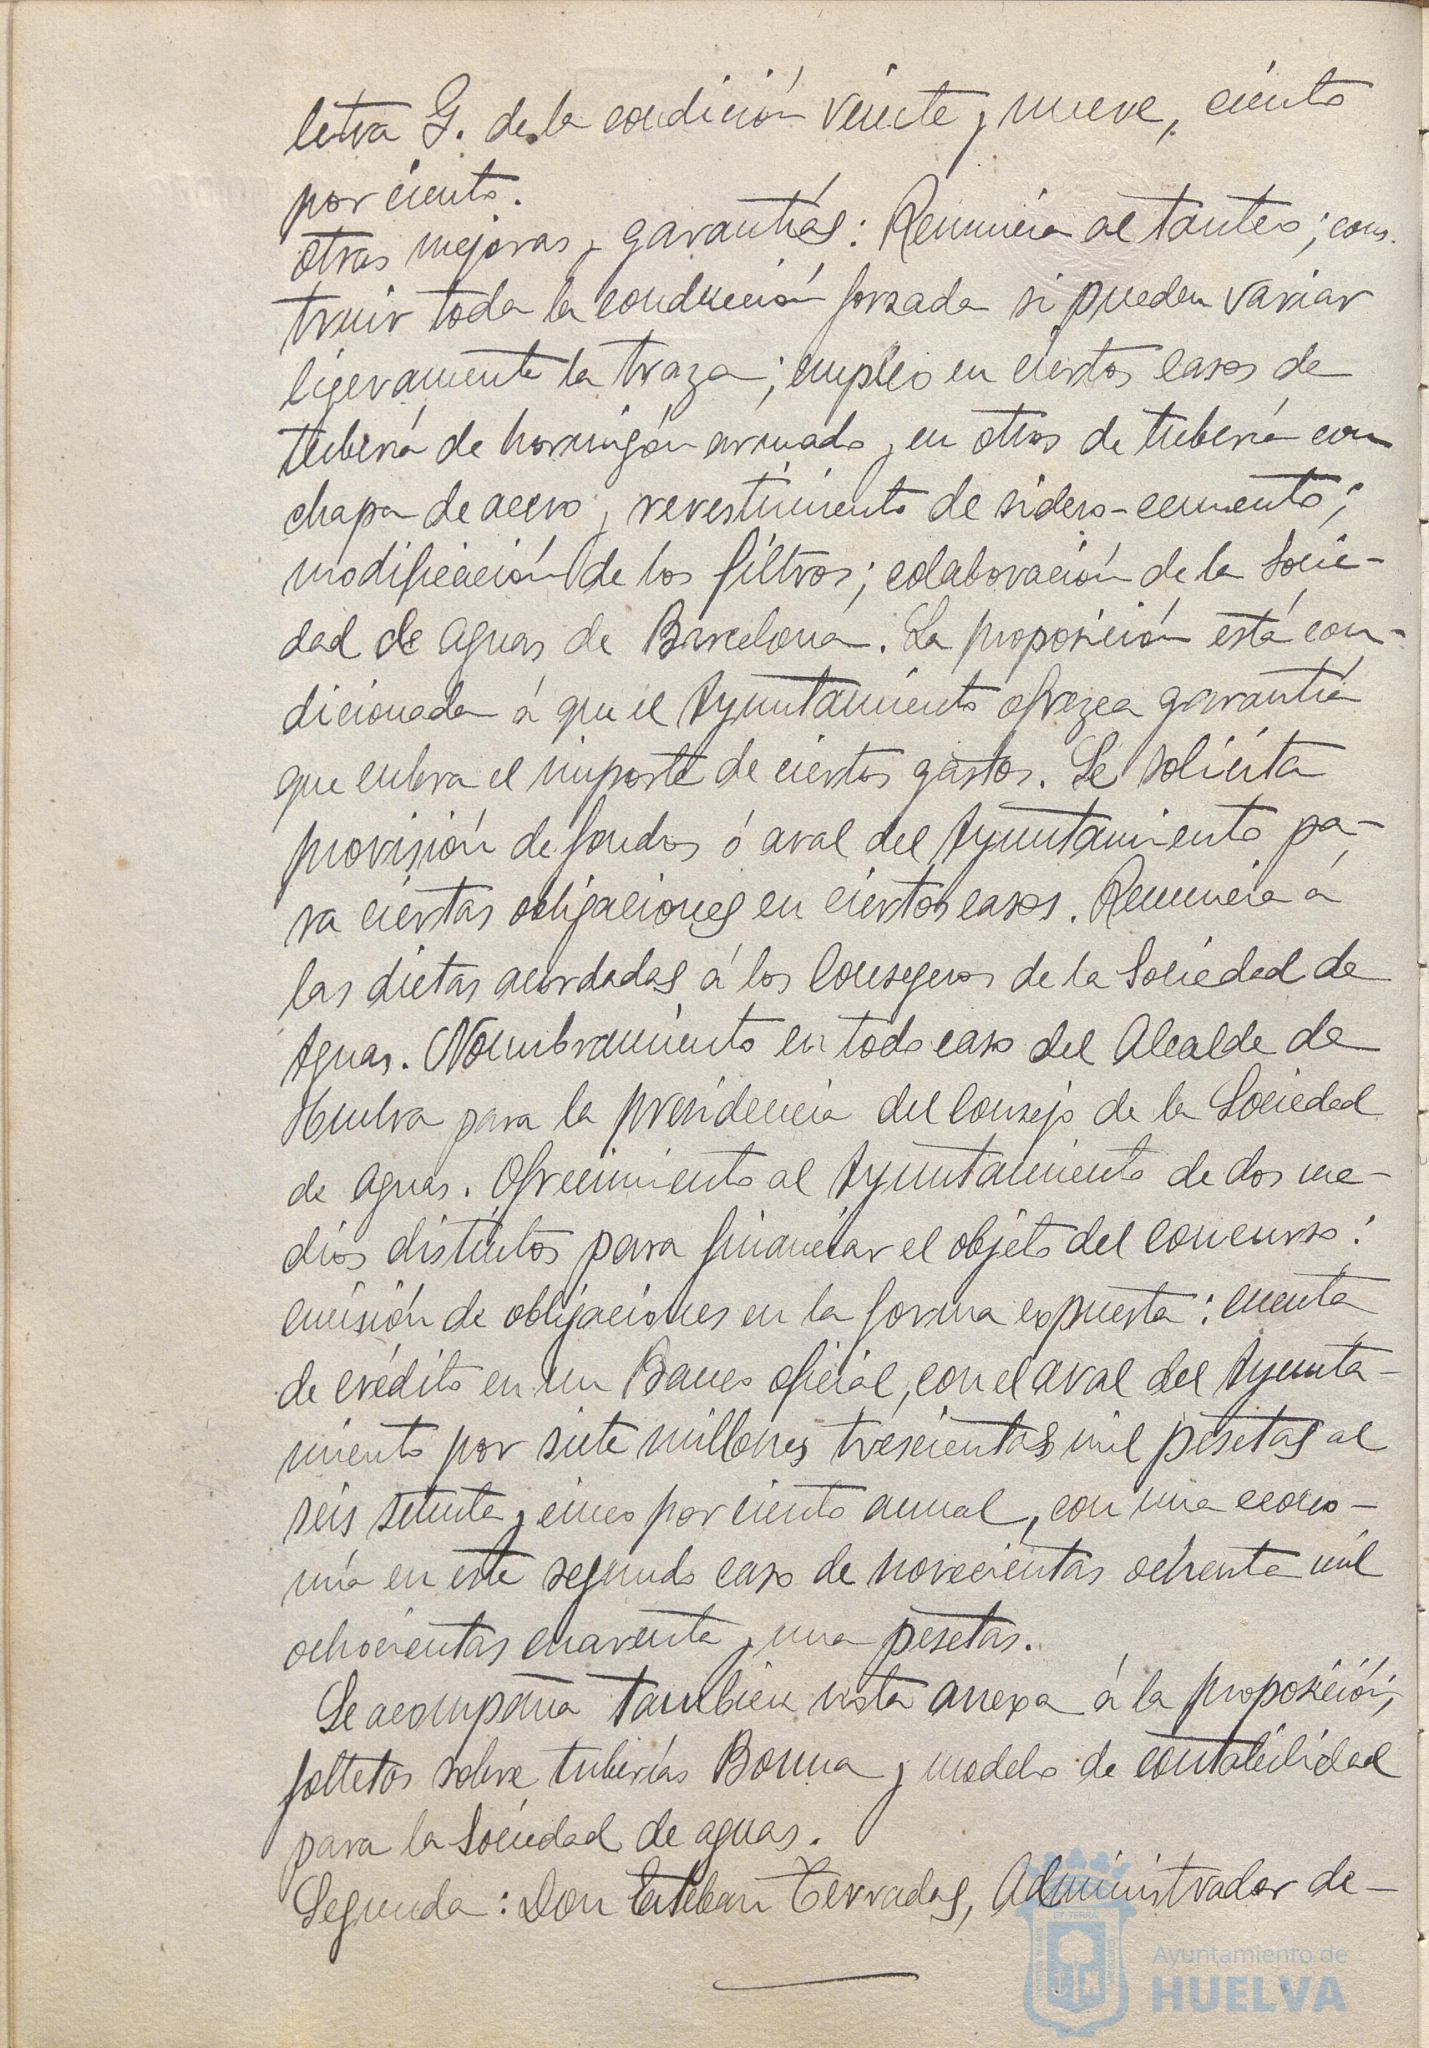 letra G. de la condición veinte y nueve, ciento
por ciento.
Otras mejoras y garantías: Renuncia al tanteo; cons-
truir toda la conducción forzada si pueden variar
ligeramente la traza; empleo en ciertos casos de
tubería de hormigón armado y en otros de tubería con
chapa de acero y revestimiento de sidero-cemento;
modificación de los filtros; colaboración de la Socie-
dad de Aguas de Barcelona. La proposición está con-
dicionada á que el Ayuntamiento ofrezca garantía
que cubra el importe de ciertos gastos. Se solicita
provisión de fondos ó aval del Ayuntamiento pa-
ra ciertas obligaciones en ciertos casos. Renuncia á
las dietas acordadas á los Consegeros de la Sociedad de
Aguas. Nombramiento en todo caso del Alcalde de
Huelva para la presidencia del Consejo de la Sociedad
de Aguas. Ofrecimiento al Ayuntamiento de dos me-
dios distintos para financiar el objeto del concurso:
emisión de obligaciones en la forma expuesta: cuenta
de crédito en un Banco oficial, con el aval del Ayunta-
miento por siete millones trescientas mil pesetas al
seis setenta y cinco por ciento anual, con una econo-
mía en este segundo caso de novecientas ochenta mil
ochocientas cuarenta y una pesetas.
Se acompaña también nota anexa á la proposición,
folletos sobre tuberías Bonna y modelo de contabilidad
para la Sociedad de aguas.
Segunda: Don Esteban Terradas, Administrador de-
Ayuntamiento de
HUELVA